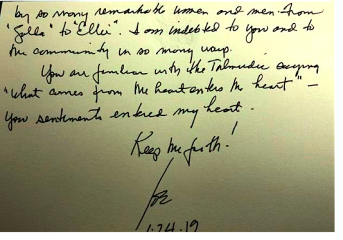 by so many remarkable women and men - from
"Golda" to "Ellie". I am indebted to you and to
the community in so many ways.
You are familiar with the Talmudic saying
"what comes from the heart enters the heart" —
your sentiments entered my heart.
Keep the faith!
1.24.19